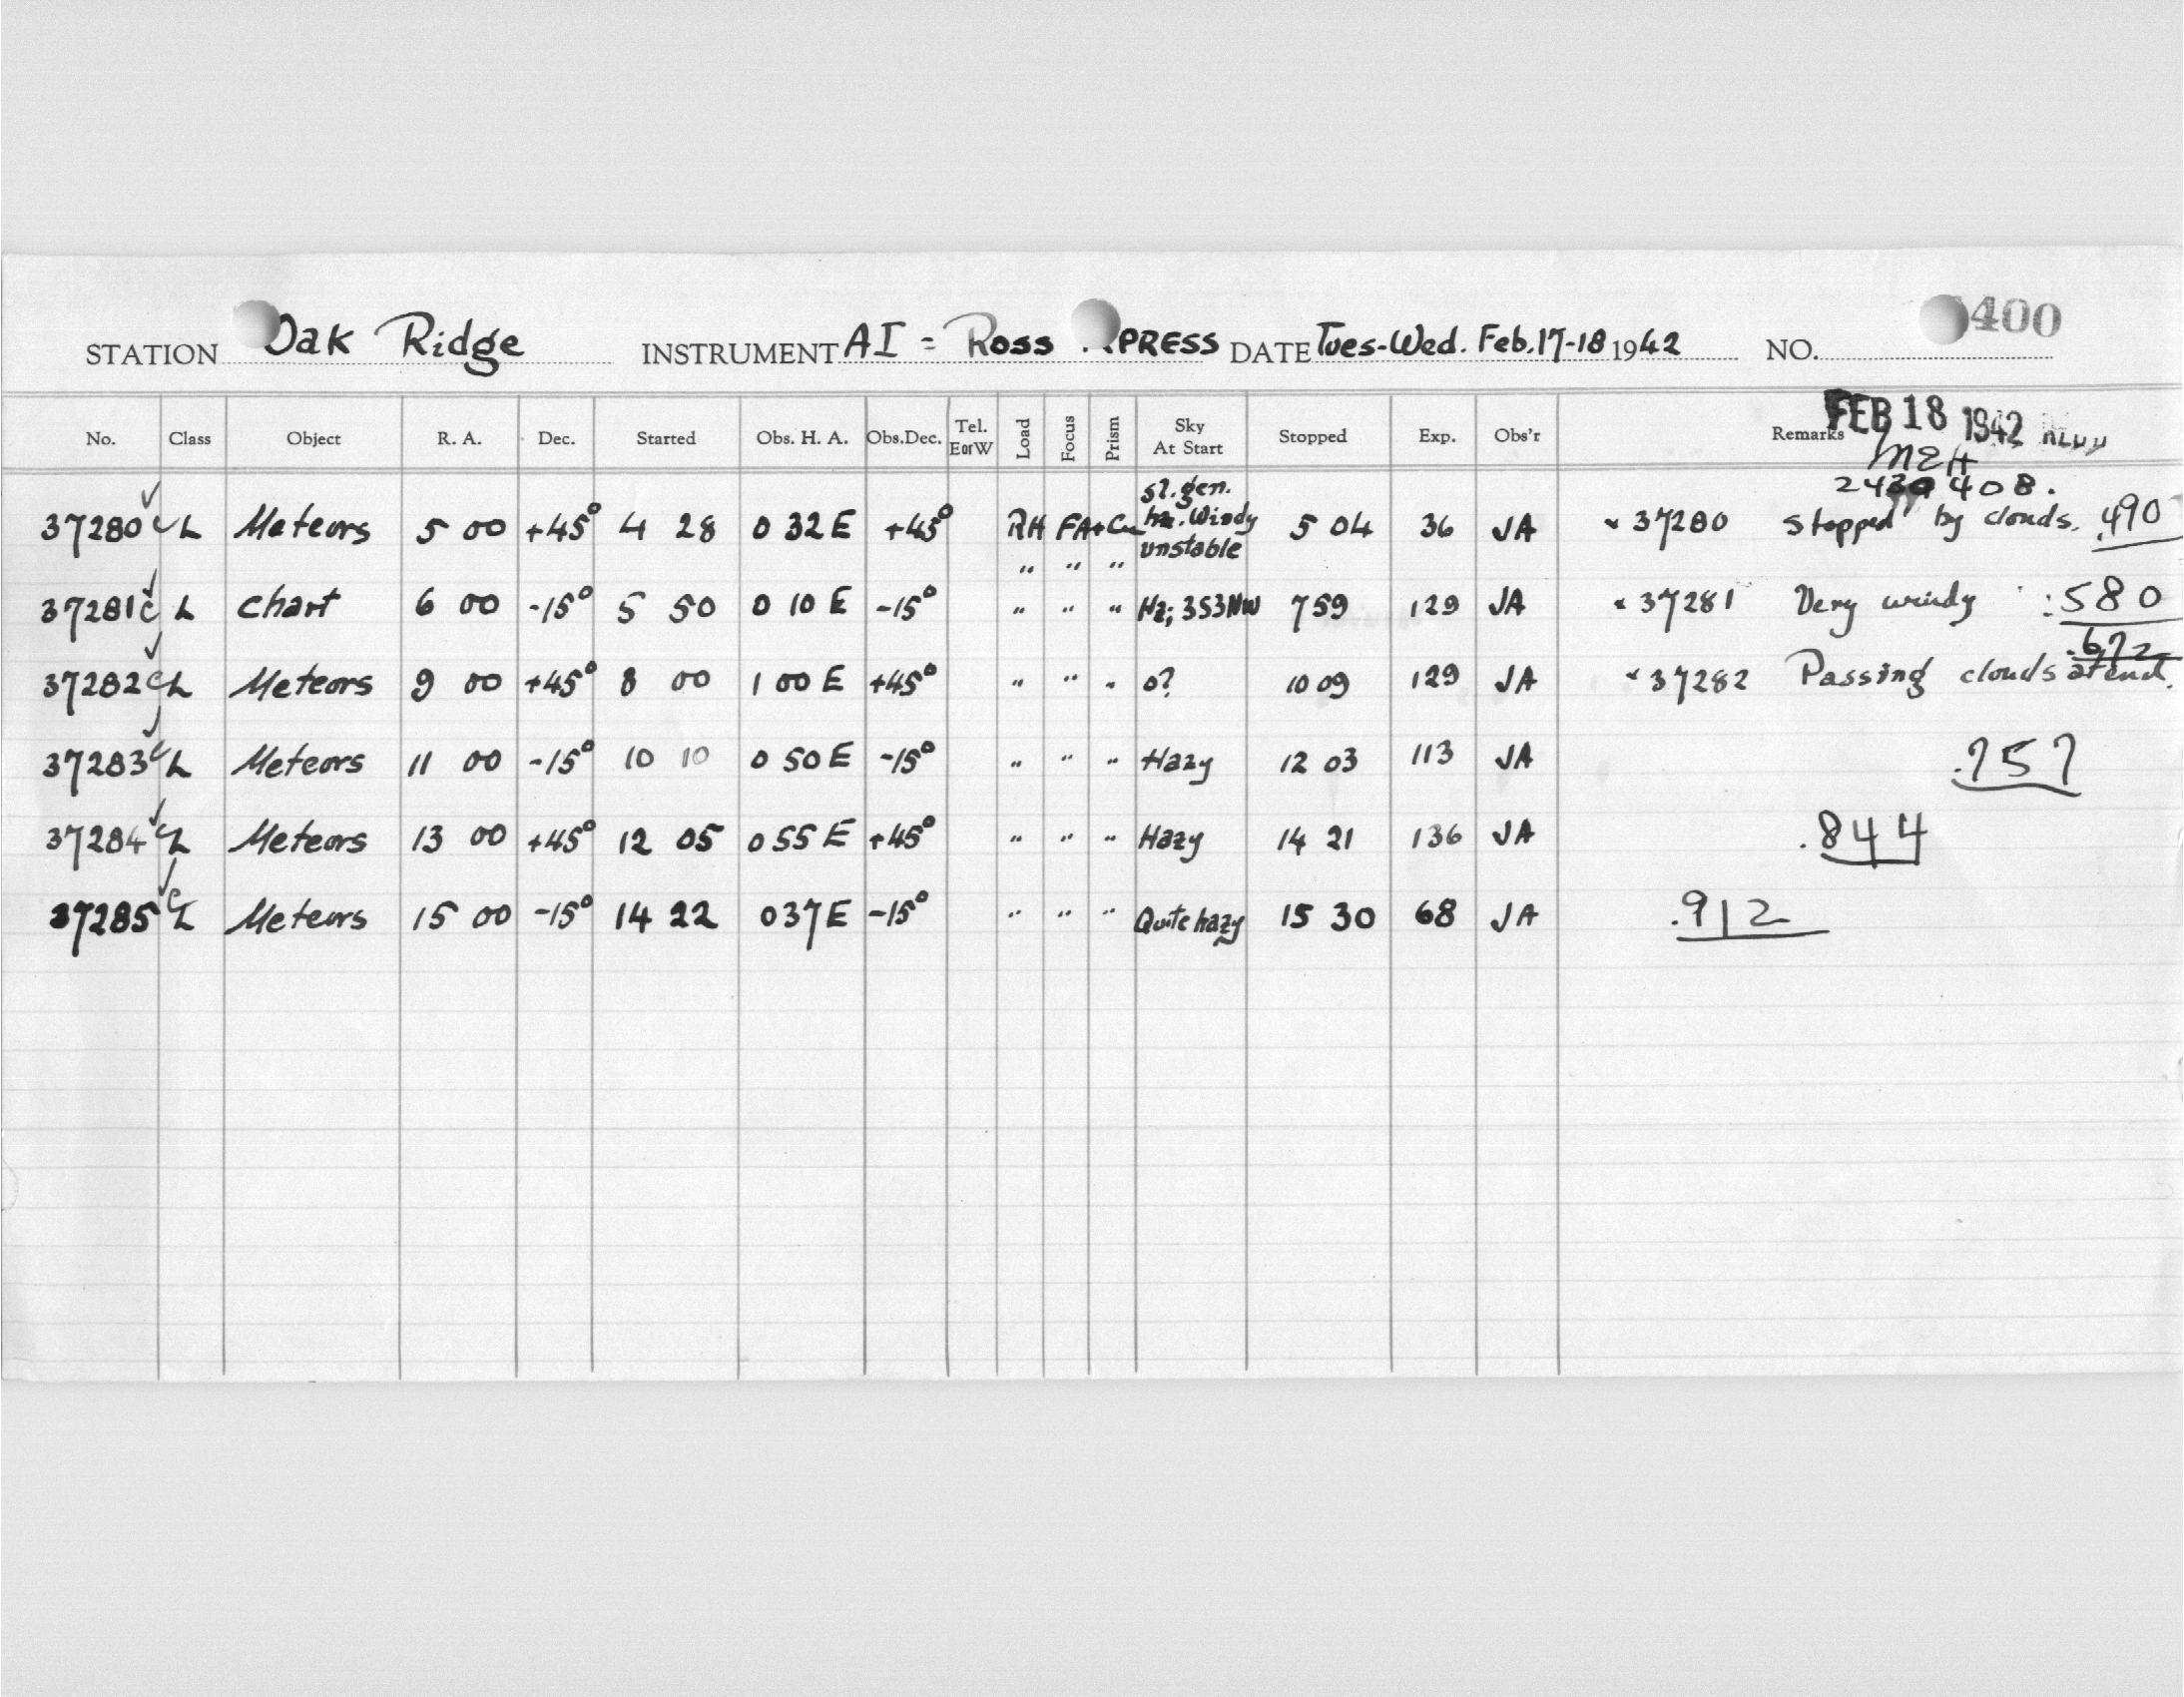 400
STATION Oak Ridge INSTRUMENT AI = Ross PRESS DATE Tues-Wed. Feb. 17-18 1942 NO.
FEB 18 1942
No. Class Object R. A. Dec. Started Obs. H. A. Obs.Dec. Tel. EorW Load Focus Prism Sky At Start Stopped Exp. Obs'r Remarks
MEH
408.
37280 c L Meteors 5 00 +45° 4 28 0 32 E +45° RH FA+Cu sl. gen. hz. Windy unstable 5 04 36 JA 37280 Stopped by clouds. .490
" " "
37281 c L Chart 6 00 -15° 5 50 0 10 E -15° " " " Hz; 3S3NW 7 59 129 JA 37281 Very windy .580
.672
37282 c L Meteors 9 00 +45° 8 00 1 00 E +45° " " " 0? 10 09 129 JA 37282 Passing clouds at end.
37283 c L Meteors 11 00 -15° 10 10 0 50 E -15° " " " Hazy 12 03 113 JA .757
37284 c L Meteors 13 00 +45° 12 05 0 55 E +45° " " " Hazy 14 21 136 JA .844
37285 c L Meteors 15 00 -15° 14 22 0 37 E -15° " " " Quite hazy 15 30 68 JA .912